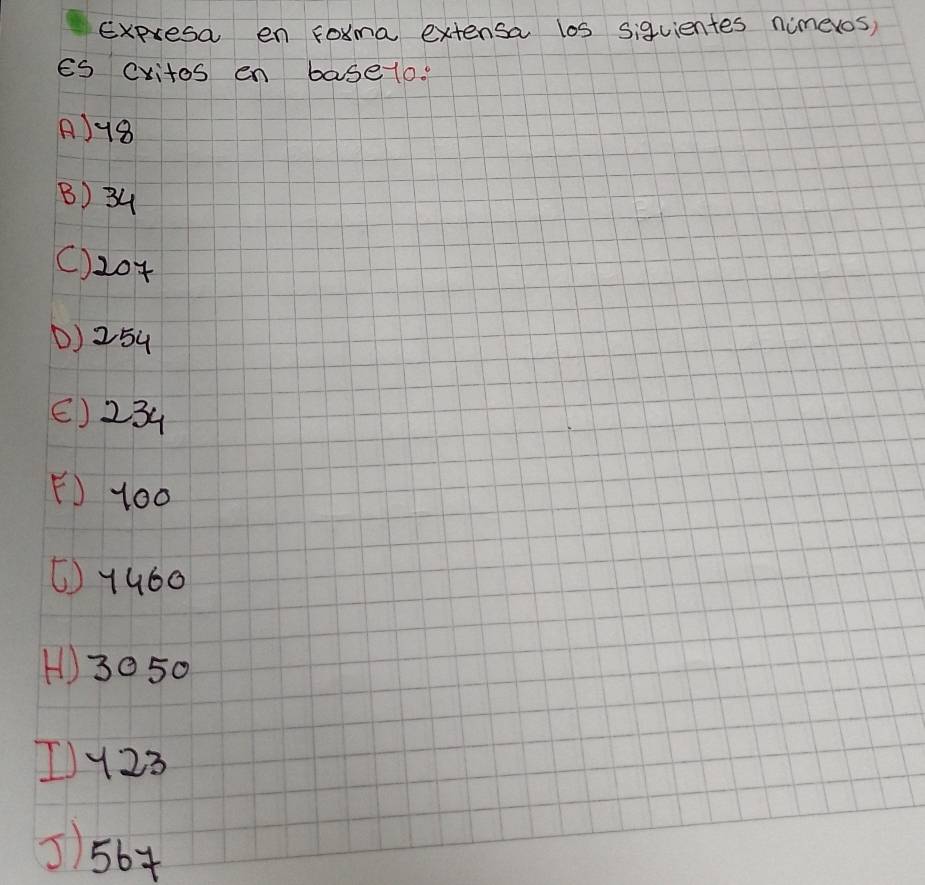 Expresa en forma extensa los siguientes números,
Es critos en base 10:
A) 18
B) 34
C) 207
D) 254
E) 234
F) 100
G) 1460
H) 3050
I) 123
J) 567